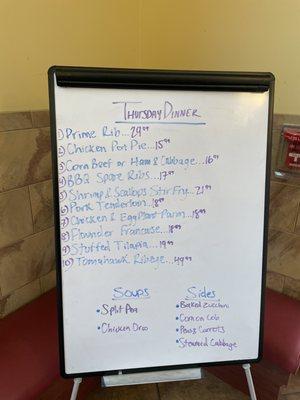 Thursday Dinner
1) Prime Rib...29⁹⁹
2) Chicken Pot Pie...15⁹⁹
3) Corn Beef or Ham & Cabbage...16⁹⁹
4) BBQ Spare Ribs...17⁹⁹
5) Shrimp & Scallops Stir Fry...21⁹⁹
6) Pork Tenderloin...18⁹⁹
7) Chicken & Eggplant Parm...18⁹⁹
8) Flounder Francaise...18⁹⁹
9) Stuffed Tilapia...19⁹⁹
10) Tomahawk Ribeye...49⁹⁹
Soups
• Split Pea
• Chicken Orzo
Sides
• Baked Zucchini
• Corn on Cob
• Peas & Carrots
• Steamed Cabbage